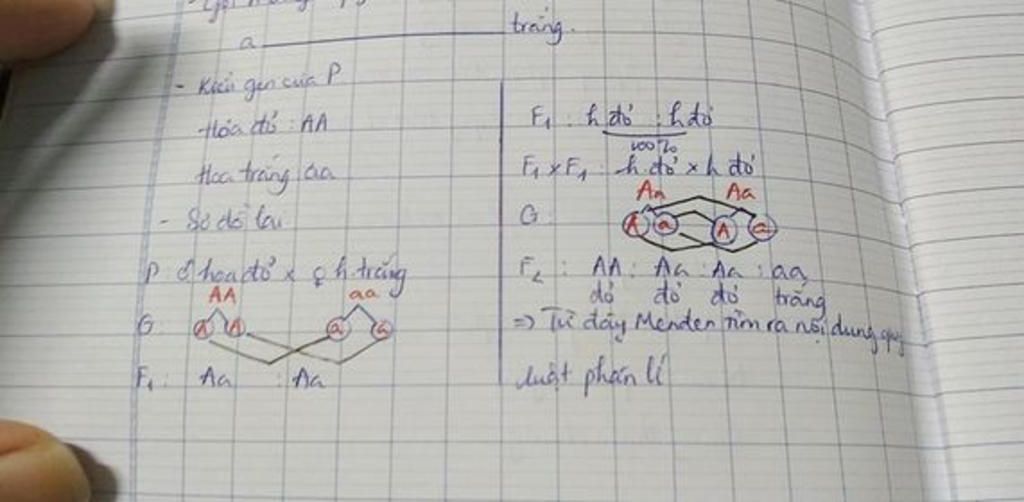 a ——— trắng.
- Kiểu gen của P
Hoa đỏ : AA
Hoa trắng aa
- Sơ đồ lai
P ♂ hoa đỏ x ♀ h. trắng
AA aa
G A A a a
F₁ : Aa : Aa
F₁ : h đỏ : h đỏ
100%
F₁ x F₁ : h đỏ x h đỏ
Aa Aa
G A a A a
F₂ : AA : Aa : Aa : aa
đỏ đỏ đỏ trắng
=> Từ đây Menden tìm ra nội dung quy
luật phân li